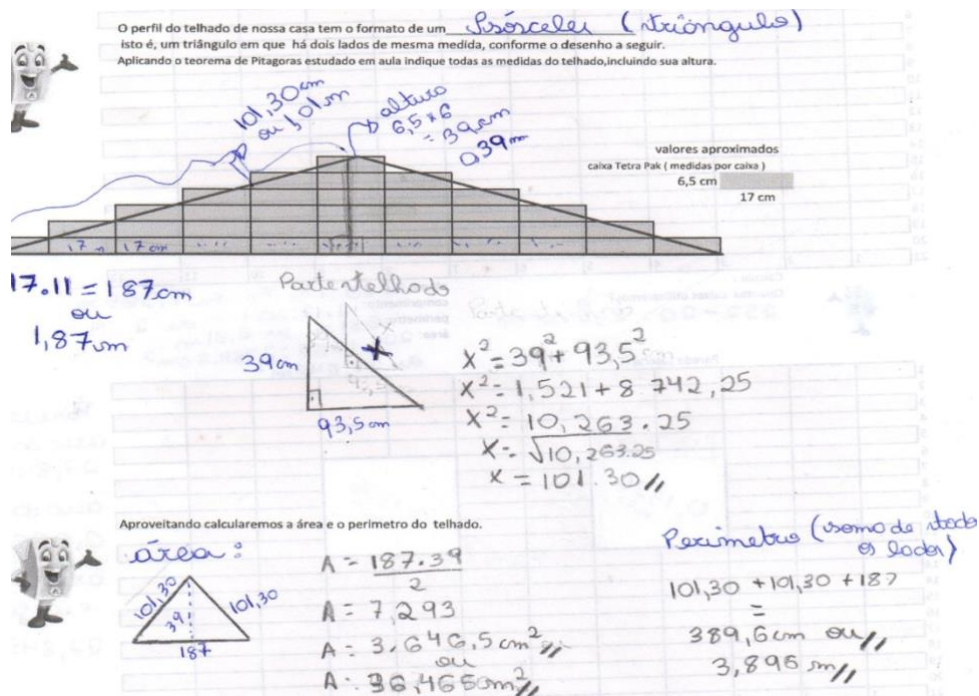 O perfil do telhado de nossa casa tem o formato de um Isósceles (triângulo)
isto é, um triângulo em que há dois lados de mesma medida, conforme o desenho a seguir.
Aplicando o teorema de Pitagoras estudado em aula indique todas as medidas do telhado,incluindo sua altura.
101,30cm
ou 1,01m
altura
6,5 x 6
= 39cm
0,39m
valores aproximados
caixa Tetra Pak ( medidas por caixa )
6,5 cm
17 cm
17 17 cm
17.11 = 187cm
ou
1,87m
Parte telhado
39cm
x
93,5cm
x² = 39² + 93,5²
x² = 1,521 + 8 742,25
x² = 10,263.25
x = √10,263.25
x = 101.30//
Aproveitando calcularemos a área e o perimetro do telhado.
área:
101,30
39
101,30
187
A = 187.39
2
A = 7,293
A = 3.646,5cm²//
ou
A = 36,465cm²//
Perimetro (soma de todos
os lados)
101,30 + 101,30 + 187
=
389,6cm ou//
3,896 m//